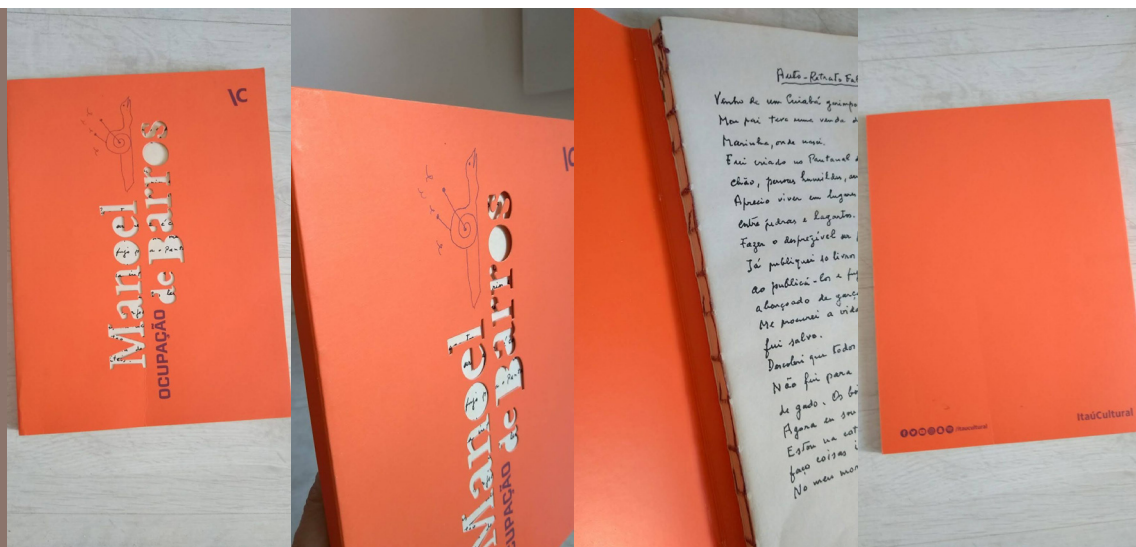 IC
Manoel
de Barros
OCUPAÇÃO
IC
Manoel
de Barros
OCUPAÇÃO
Auto-Retrato Fal
Venho de um Cuiabá garimpo
Meu pai teve uma venda d
Marinha, onde nasci.
Fui criado no Pantanal d
chão, pessoas humildes, av
Aprecio viver em lugares
entre pedras e lagartos.
Fazer o desprezível ser
Já publiquei 10 livros
ao publicá-los e fu
abençoado de garça
Me procurei a vida
fui salvo.
Descobri que todos
Não fui para
de gado. Os bo
Agora eu sou
Estou na cat
faço coisas i
No meu mor
ItaúCultural
/itaucultural